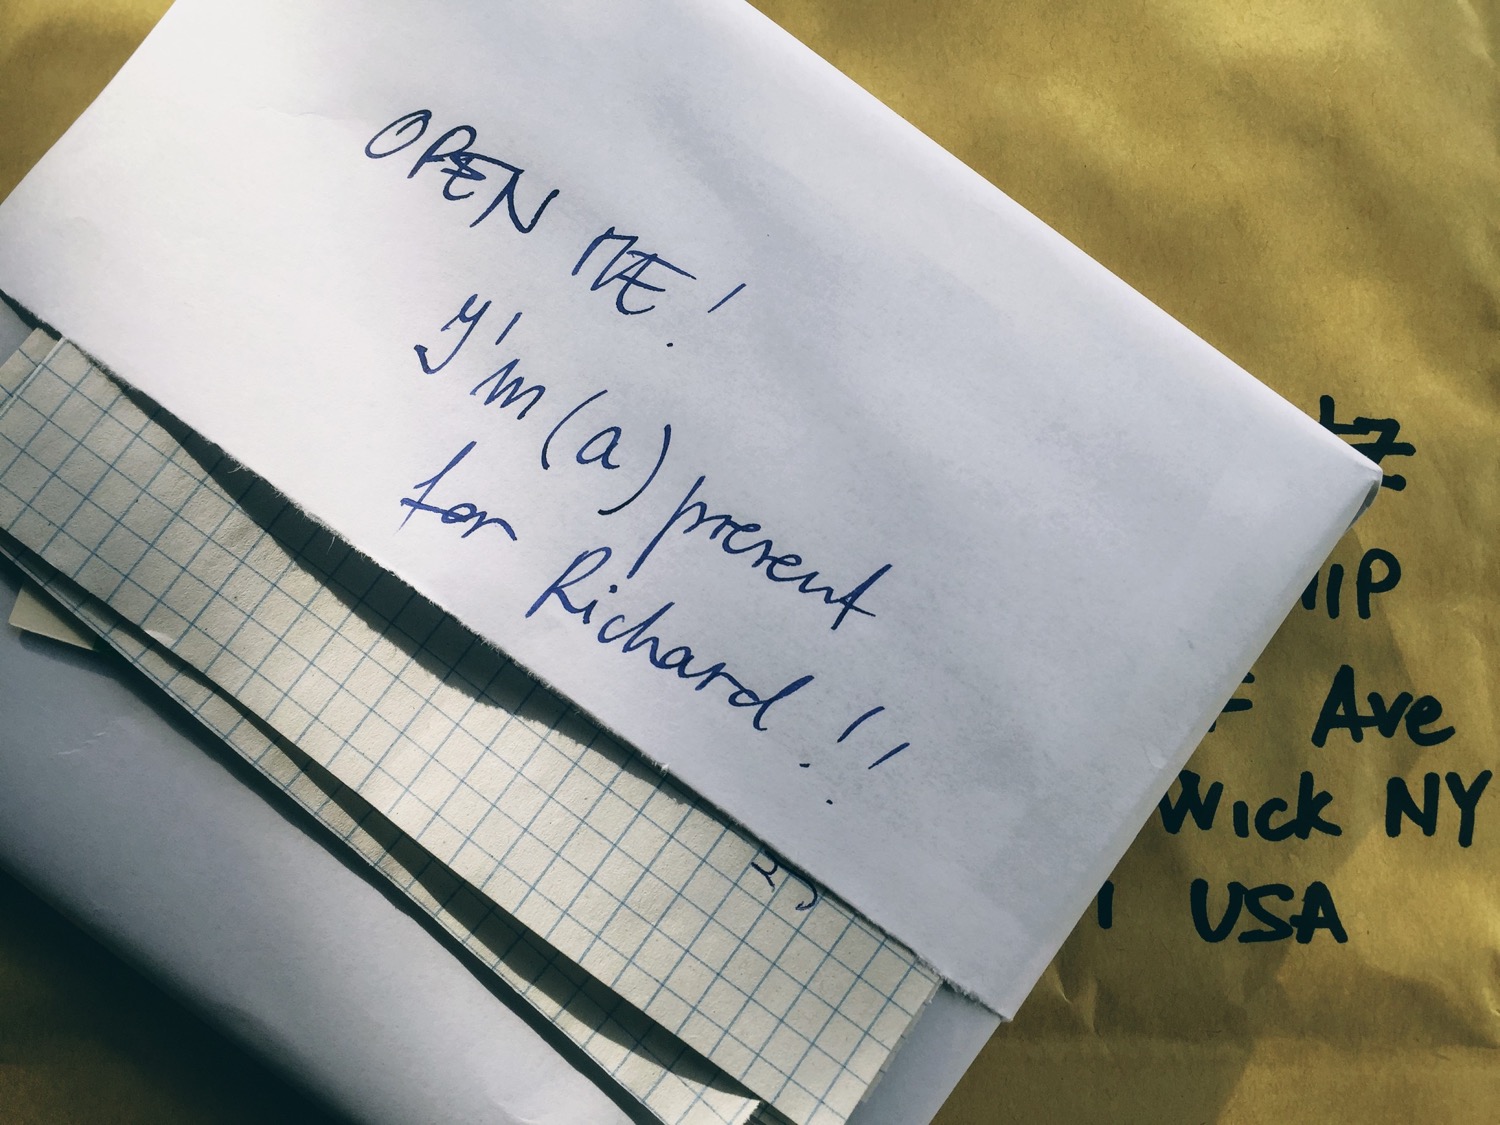 OPEN ME!
I'm (a) present
for Richard!!
Ave
NY
USA